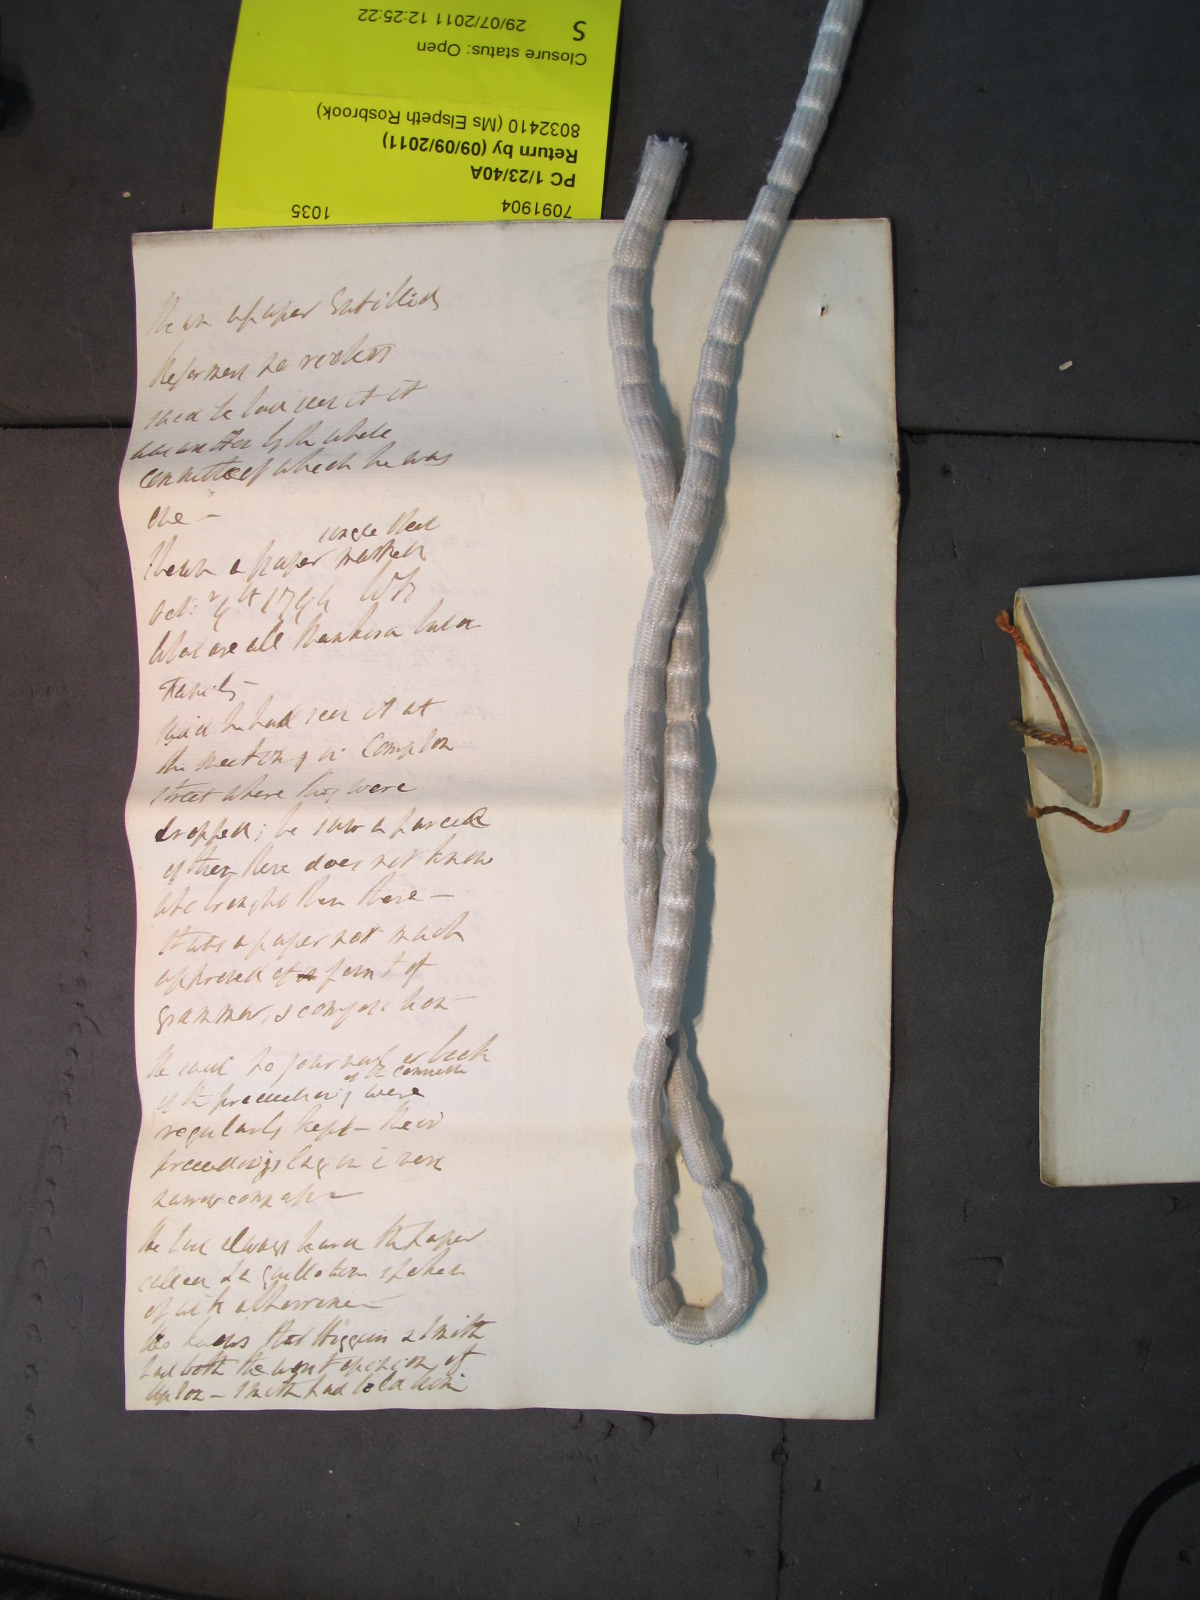 29/07/2011 12:25:22
S
Closure status: Open
8032410 (Ms Elspeth Rosbrook)
Return by (09/09/2011)
PC 1/23/40A
7091904 1035
a paper Entitled
Reformers no rioters
said he had seen it it
was written by the whole
committee of which he was
one —
single sheet
Shewn a paper marked
Oct.r 4th 1794 W
What are all
Family —
said he had seen it at
the meeting in Compton
street where they were
dropped; he saw a parcel
of them there does not know
who brought them there —
It was a paper not much
approved of in point of
grammar, & composition —
He said no journal or book
of the committee
of the proceedings were
regularly kept — their
proceedings lay in a very
narrow compass —
He had always heard the paper
called La Guillotine spoken
of with abhorrence —
He knows that Higgins & Smith
had both the worst opinion of
Upton — Smith had told him